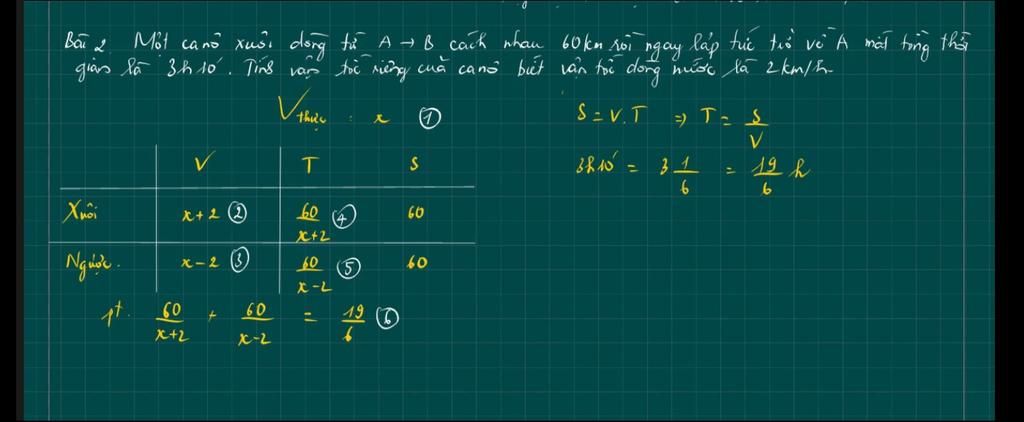 Bài 2 Một canô xuôi dòng từ A → B cách nhau 60km rồi ngay lập tức trở về A mất tổng thời
gian là 3h10'. Tính vận tốc riêng của canô biết vận tốc dòng nước là 2km/h.
Vthực : x ①
S = V.T ⇒ T = S/V
3h10' = 3 1/6 = 19/6 h
V T S
Xuôi x+2 ② 60/(x+2) ④ 60
Ngược. x-2 ③ 60/(x-2) ⑤ 60
pt. 60/(x+2) + 60/(x-2) = 19/6 ⑥